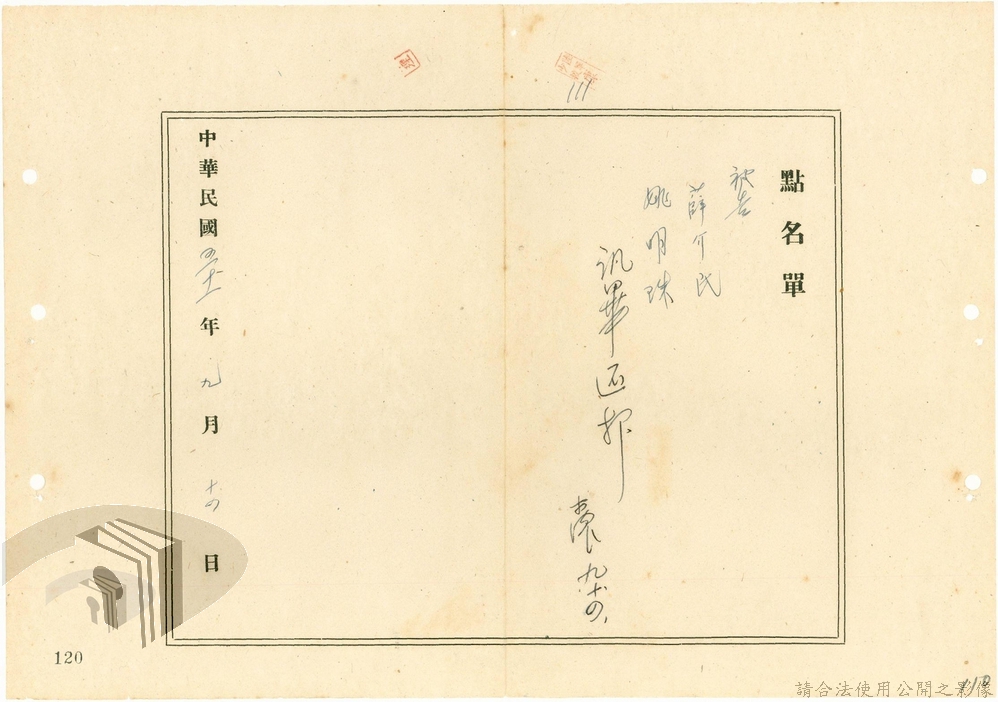 111
點名單
被告
薛介民
姚明珠
訊畢還押
九十四、
中華民國五十一年九月十四日
120
110
請合法使用公開之影像